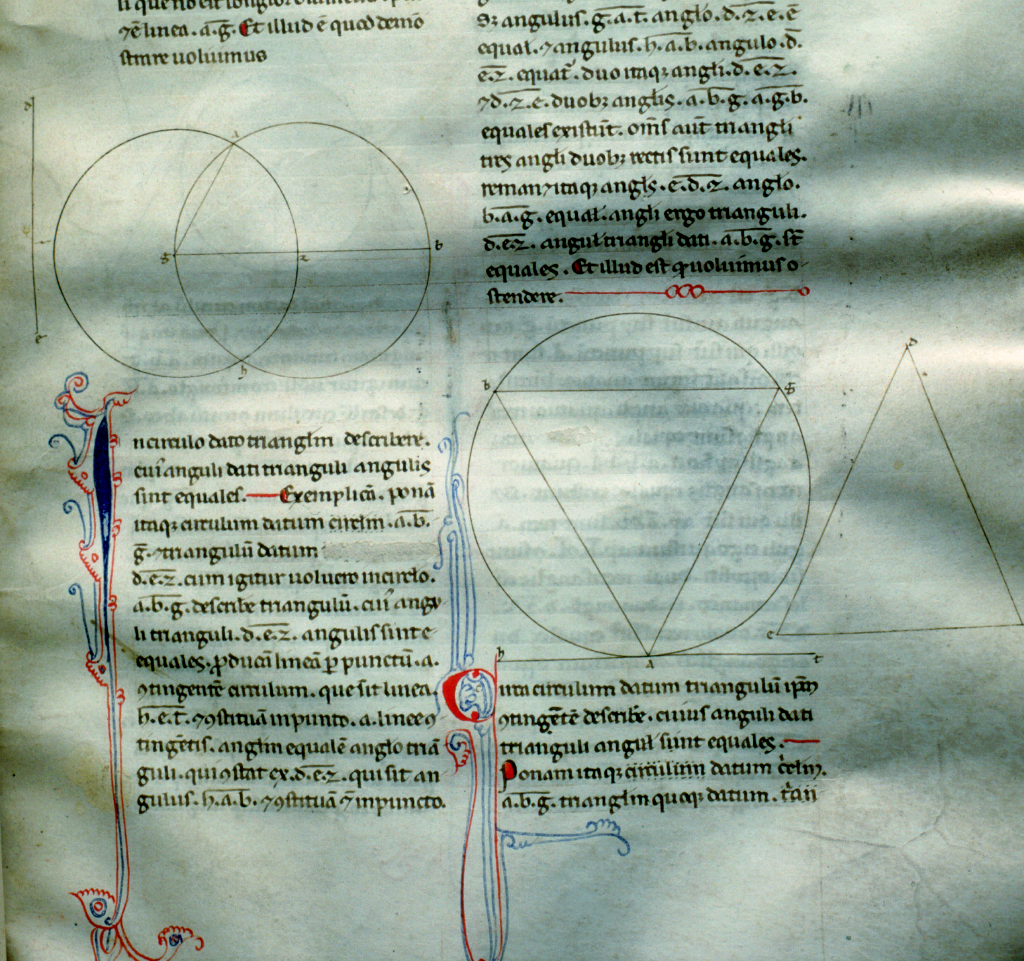 ⁊ ē linea. a͞g. Et illud ē quod demō
strare uoluimus
n circulo dato trianglm describere.
cuiꝰ anguli dati trianguli angulis
sint equales. Exemplicā. ponā
itaqꝫ circulum datum circlm. a͞b.
g͞. ⁊ triangulū datum
d͞.e͞.z͞. cum igitur uoluero incirclo.
a͞.b͞.g͞. describe triangulū. cuiꝰ angu
li trianguli. d͞.e͞.z͞. angulis sint e
equales. ꝓducā lineā ꝑ punctū. a.
ꝯtingentē circulum. que sit linea.
h͞.e͞.t͞. ⁊ ꝯstituā inpunto. a. linee ꝯ
tingētis. anglm equalē anglo triā
guli. qui ꝯstat ex. d͞.e͞.z͞. qui sit an
gulus. h͞.a͞.b͞. ⁊ ꝯstituā inpuncto.
angulus. g͞.a͞.t͞. anglo. d͞.z͞.e͞. ē
equal. ⁊ angulus. h͞.a͞.b͞. angulo. d͞.
e͞.z͞. equat. duo itaqꝫ angli. d͞.e͞.z͞.
⁊ d͞.z͞.e͞. duobꝫ anglis. a͞.b͞.g͞. a͞.g͞.b͞.
equales existūt. om̄s aūt triangli
tres angli duobꝫ rectis sunt equales.
itaqꝫ angls. e͞.d͞.z͞. anglo.
b͞.a͞.g͞. equal. angli ergo trianguli.
d͞.e͞.z͞. angul triangli dati. a͞.b͞.g͞. st̄
equales. Et illud est qꝫ uoluimus o
stendere.
irca circulum datum triangulū ip̄m
ꝯtingētē describe. cuius anguli dati
trianguli angul sunt equales.
Ponam itaqꝫ circulum datum
a͞.b͞.g͞. trianglm quoqꝫ datum.
a
g
z
b
h
b
g
a
h
t
d
e